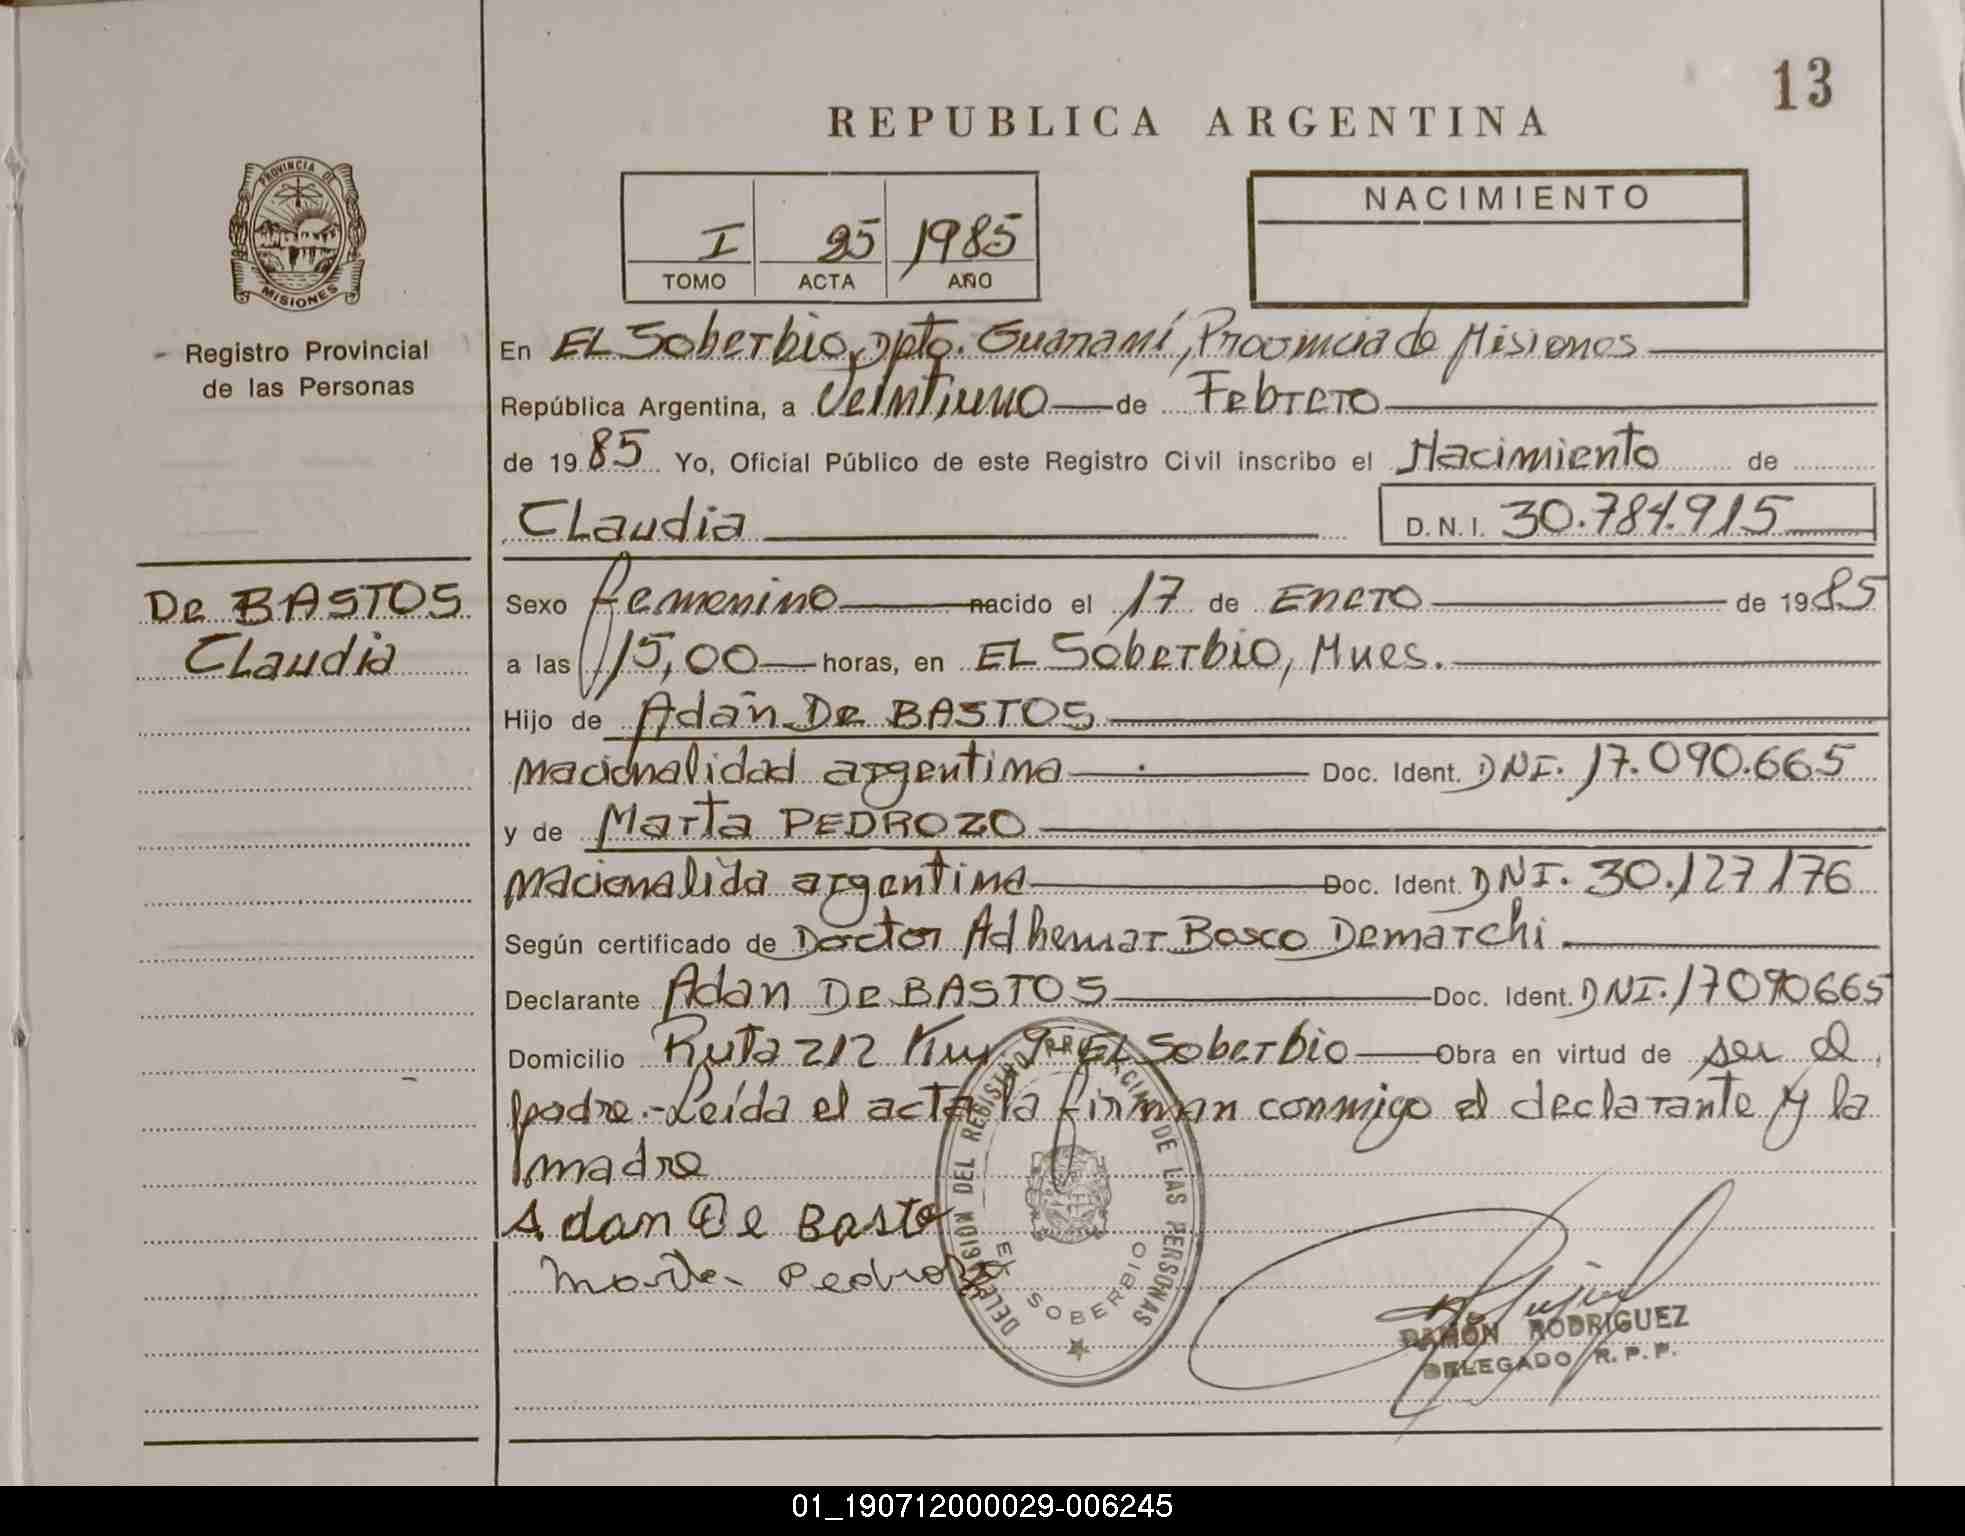 13
REPUBLICA ARGENTINA
PROVINCIA DE
MISIONES
Registro Provincial
de las Personas
I 25 1985
TOMO ACTA AÑO
NACIMIENTO
En EL Soberbio, Dpto. Guaraní, Provincia de Misiones
República Argentina, a Veintiuno de Febrero
de 1985 Yo, Oficial Público de este Registro Civil inscribo el Nacimiento de
Claudia D.N.I. 30.784.915
De BASTOS
Claudia
Sexo femenino nacido el 17 de Enero de 1985
a las 15,00 horas, en EL Soberbio, Mnes.
Hijo de Adán De BASTOS
nacionalidad argentina Doc. Ident. DNI. 17.090.665
y de Marta PEDROZO
nacionalida argentina Doc. Ident. DNI. 30.127176
Según certificado de Doctor Adhemar Bosco Demarchi
Declarante Adan De BASTOS Doc. Ident. DNI. 17090665
Domicilio Ruta 212 Km. 9 EL Soberbio Obra en virtud de ser el
padre.-Leída el acta la firman conmigo el declarante y la
madre
Adan De Basto
Marta Pedrozo
DELEGISION DEL REGISTRO PROVINCIAL DE LAS PERSONAS
EL SOBERBIO
RAMON RODRIGUEZ
DELEGADO R.P.P.
01_190712000029-006245